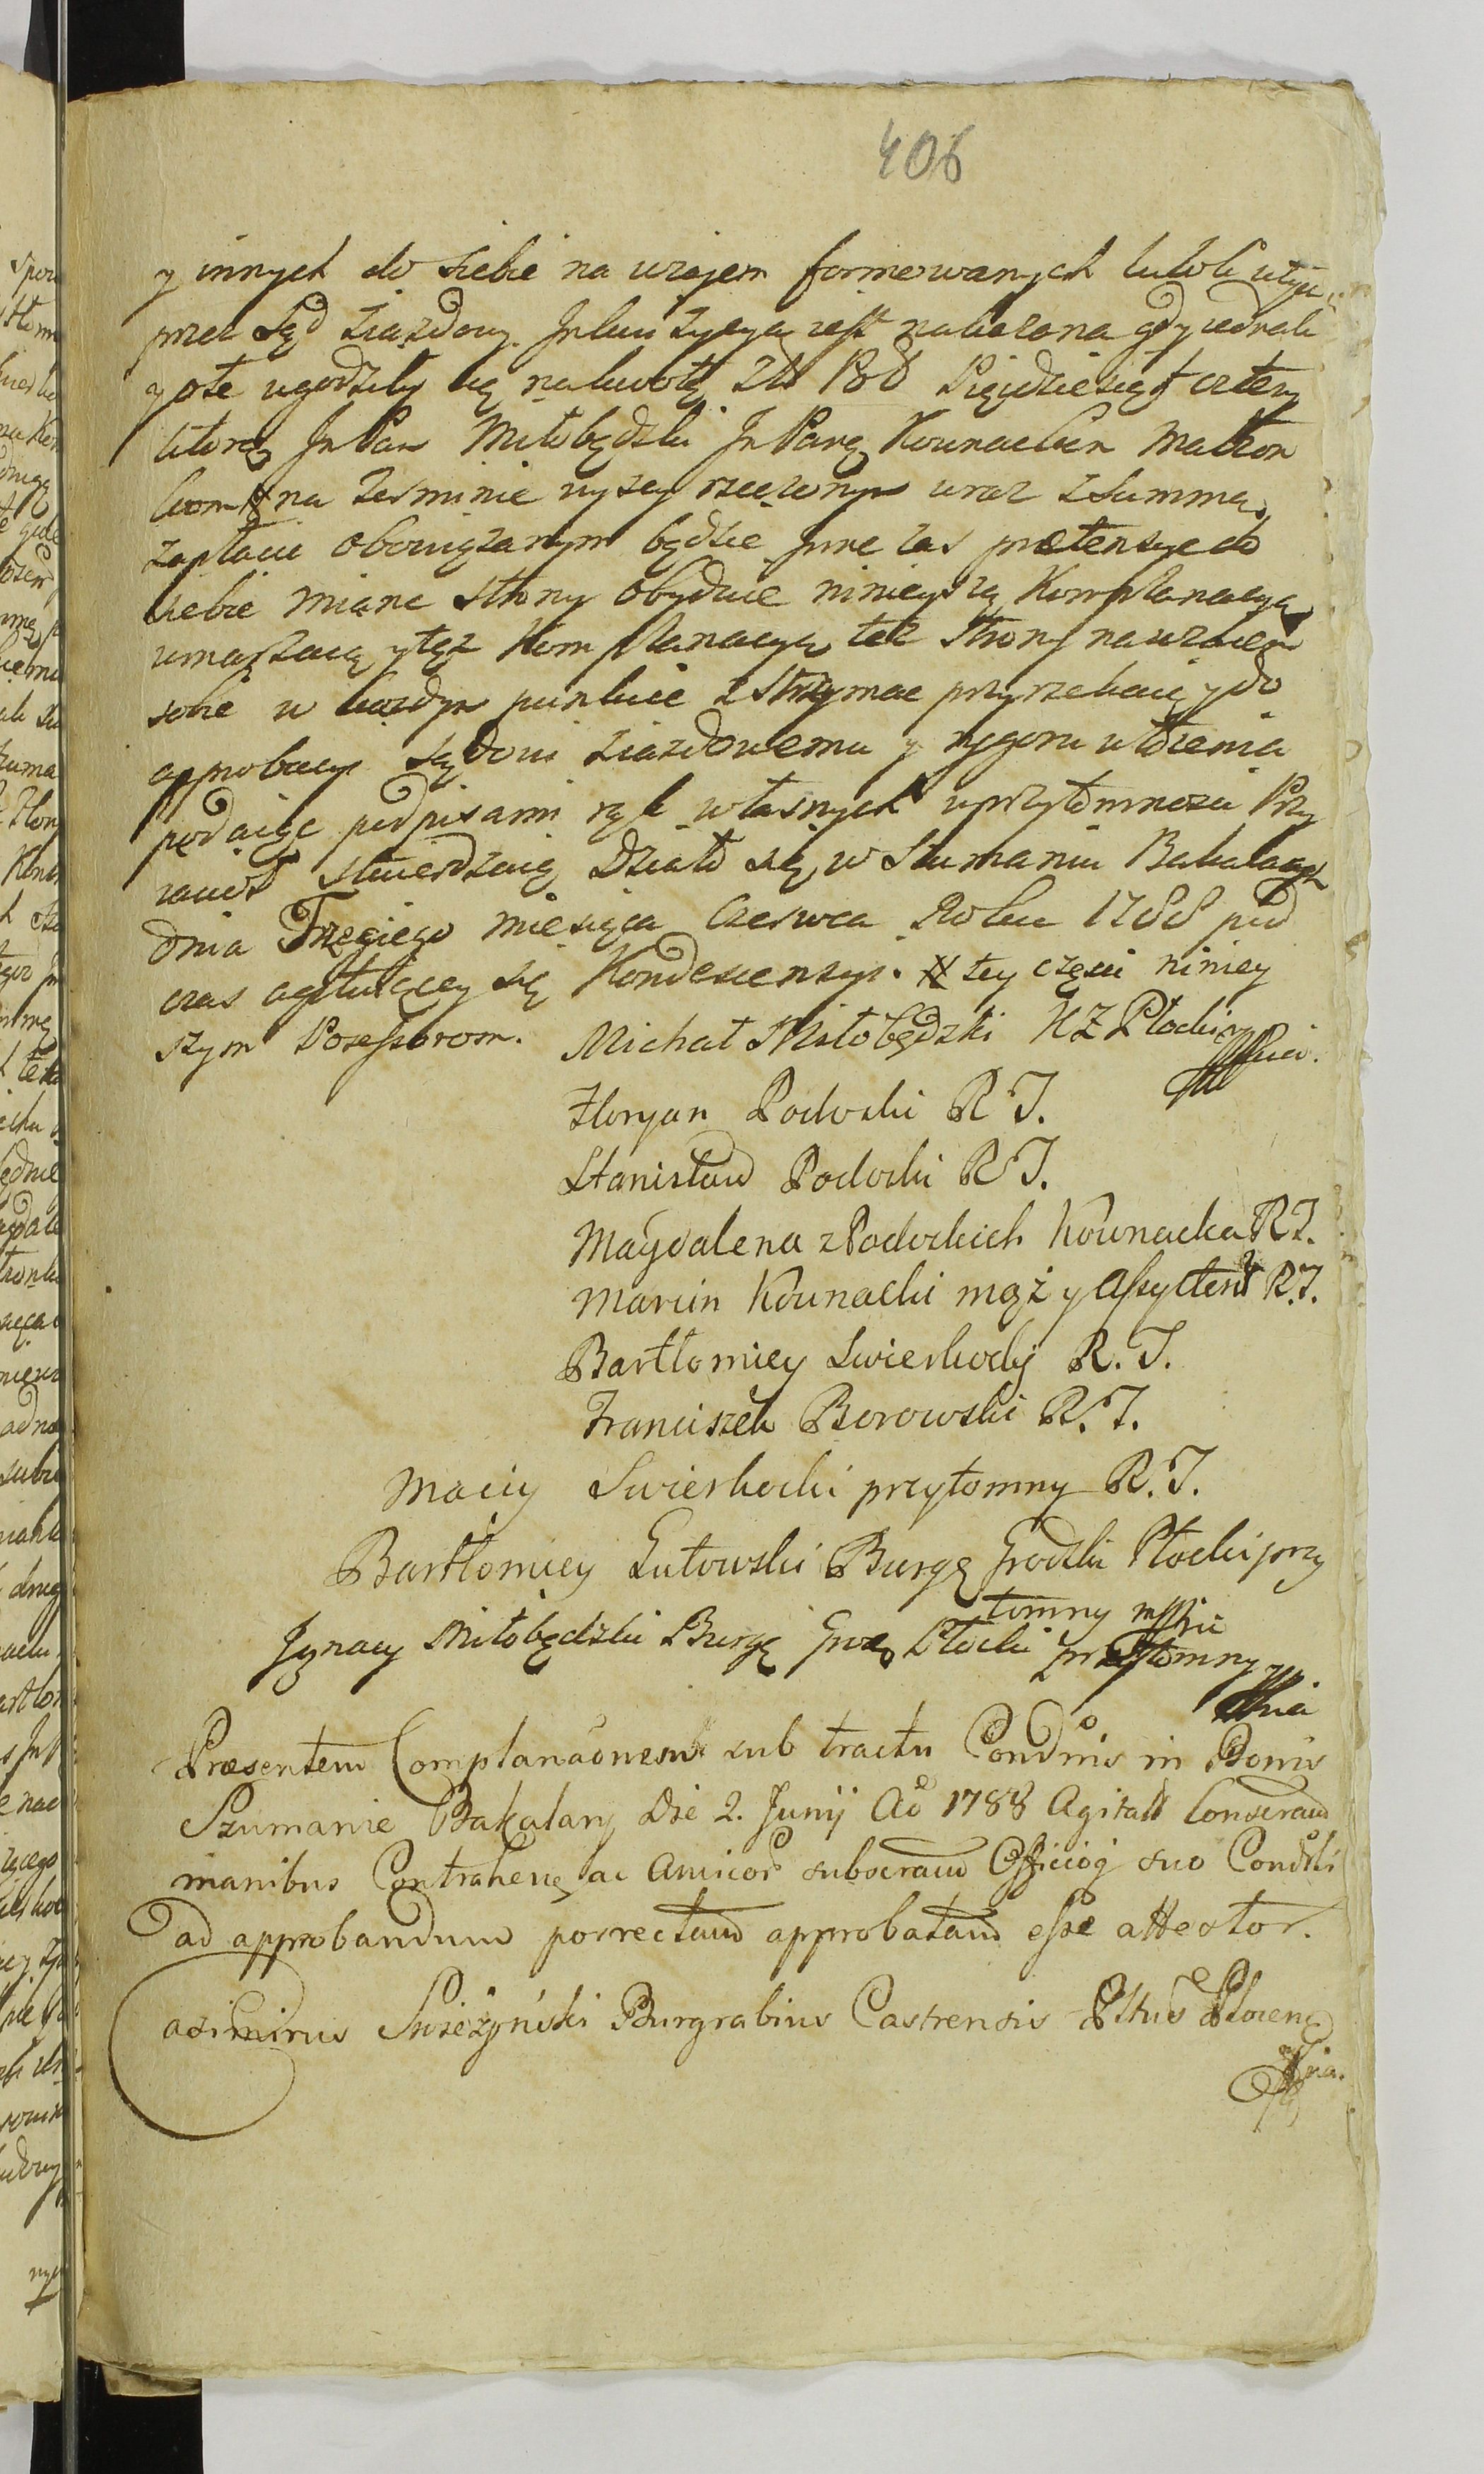 406
y innych do siebie na wzajem formowanych
przez Sąd Ziazdowy Inkwizycya iest nakazana gdy iednak
y o te ugodzily się na kwotę Zł Pol Pięcdziesiąt cztery
ktorą JmPan Miłobędzki JmPanę Kownackin Małzon
kom # na terminie wyzey rzeczonym wraz z Summą
zapłacic obowiązanym będzie Jnne zas pretensye do
siebie miane strony obydwie ninieyszą Komplanacyą
umarzaią y tęż Komplanacyą też strony na wzaiem
sobie w kazdym punkcie zstrzymac przyrzekaią y do
approbacyi Sądowi Ziazdowemu y rygoru włożenia
podaiąc podpisami rąk własnych w przytomnosci Przy
iacioł stwierdzaią Działo się w Szumaniu Bakalarzh
dnia Trzeciego miesiąca Czerwca Roku 1788 pod
czas agituiącey się Kondescensyi. # tey częsci niniey
szym Possessorom.
Michał Miłobędzki KZ Płocki mppria.
Floryan Podoski R J.
Stanisław Podoski R J.
Magdalena z Podoskich Kownacka R J.
Marcin Kownacki mąż y Assystent R. J.
Bartłomiey Swierkocki R. J.
Franciszek Borowski R. J.
Maciy Swierkocki przytomny R. J.
Bartłomiey Lutowski Burgę Grodzki Płocki przy
tomny mppria
Jgnacy Miłobędzki Burgę Płocki przytomny mppria
Præsentem Complanaõnem sub tractu Condnis in Bonis
Szumanie Bakalary Die 2. Junij Aõ 1788 Agitatt Conseram
manibus Contrahenę ac Amicor subscram Officioq suo Condsli
ad approbandum porrectam approbatam esse attestor.
Casimirus Swieżyński Burgrabius Castrensis Plocenę
mppria.